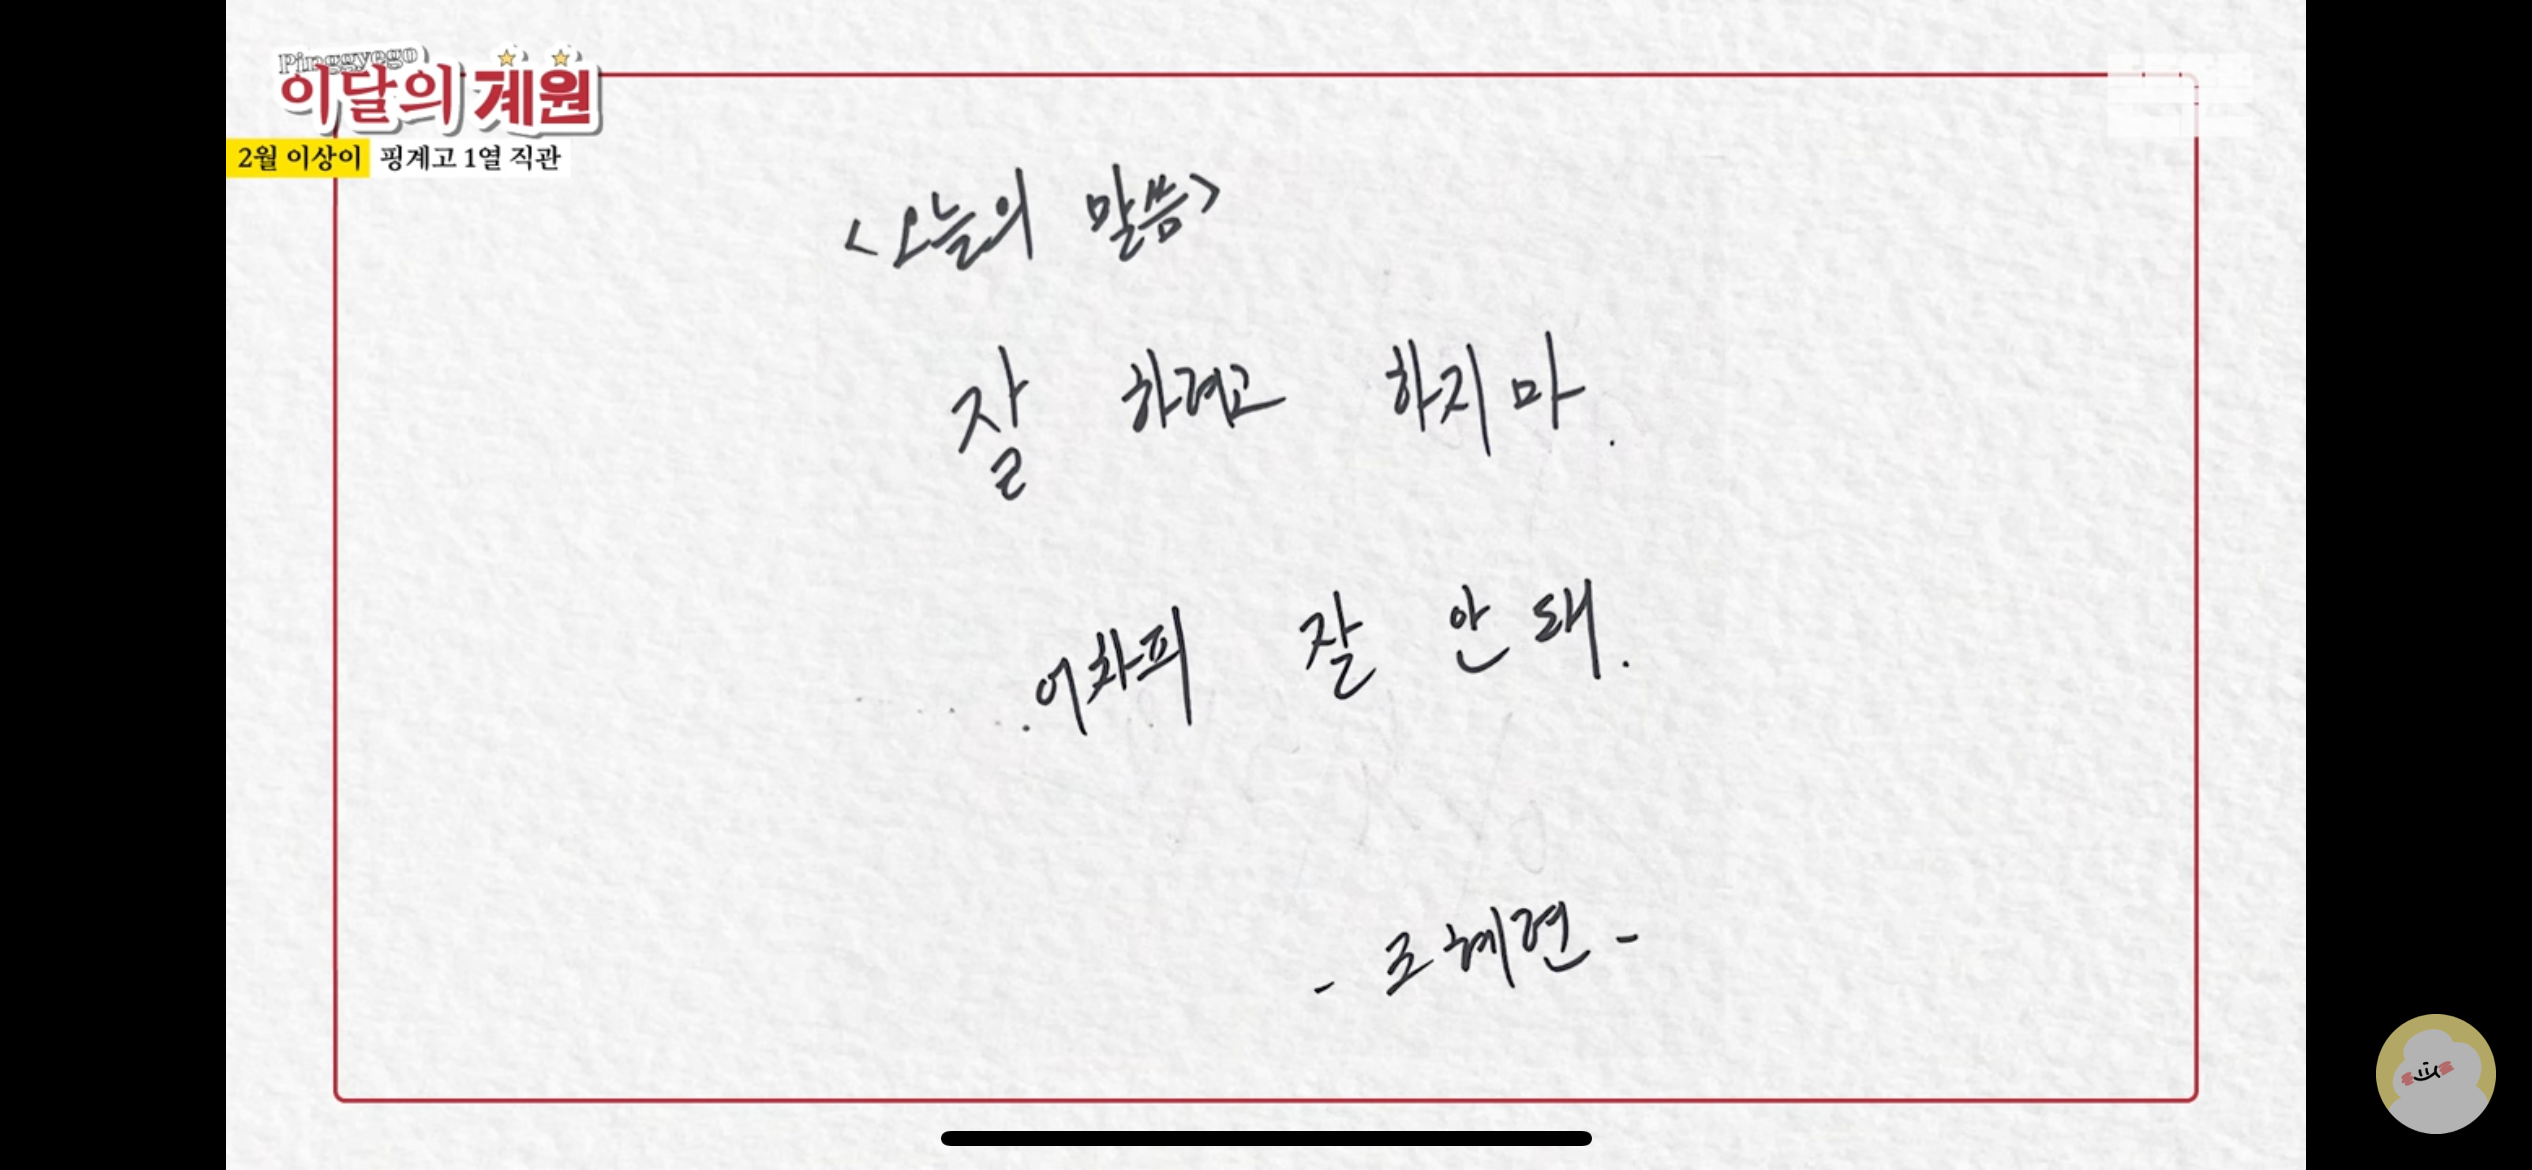 Pinggyego
이달의 계원
2월 이상이 핑계고 1열 직관
<오늘의 말씀>
잘 하려고 하지마.
어차피 잘 안돼.
- 조혜련 -